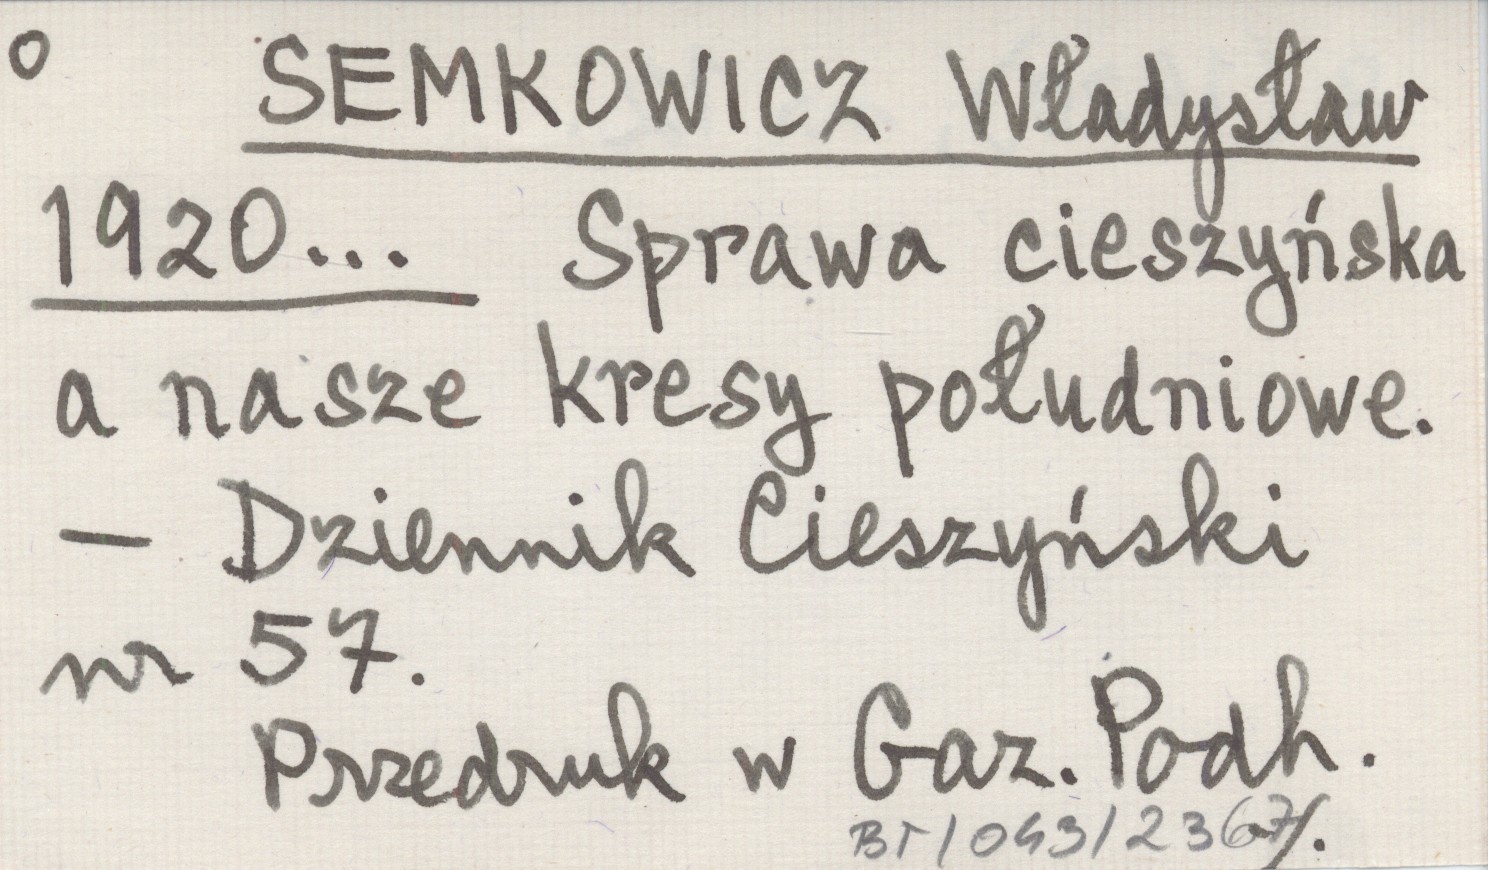 o SEMKOWICZ Władysław
1920... Sprawa cieszyńska
a nasze kresy południowe.
— Dziennik Cieszyński
nr 57.
Przedruk w Gaz. Podh.
BT/043/2367/.